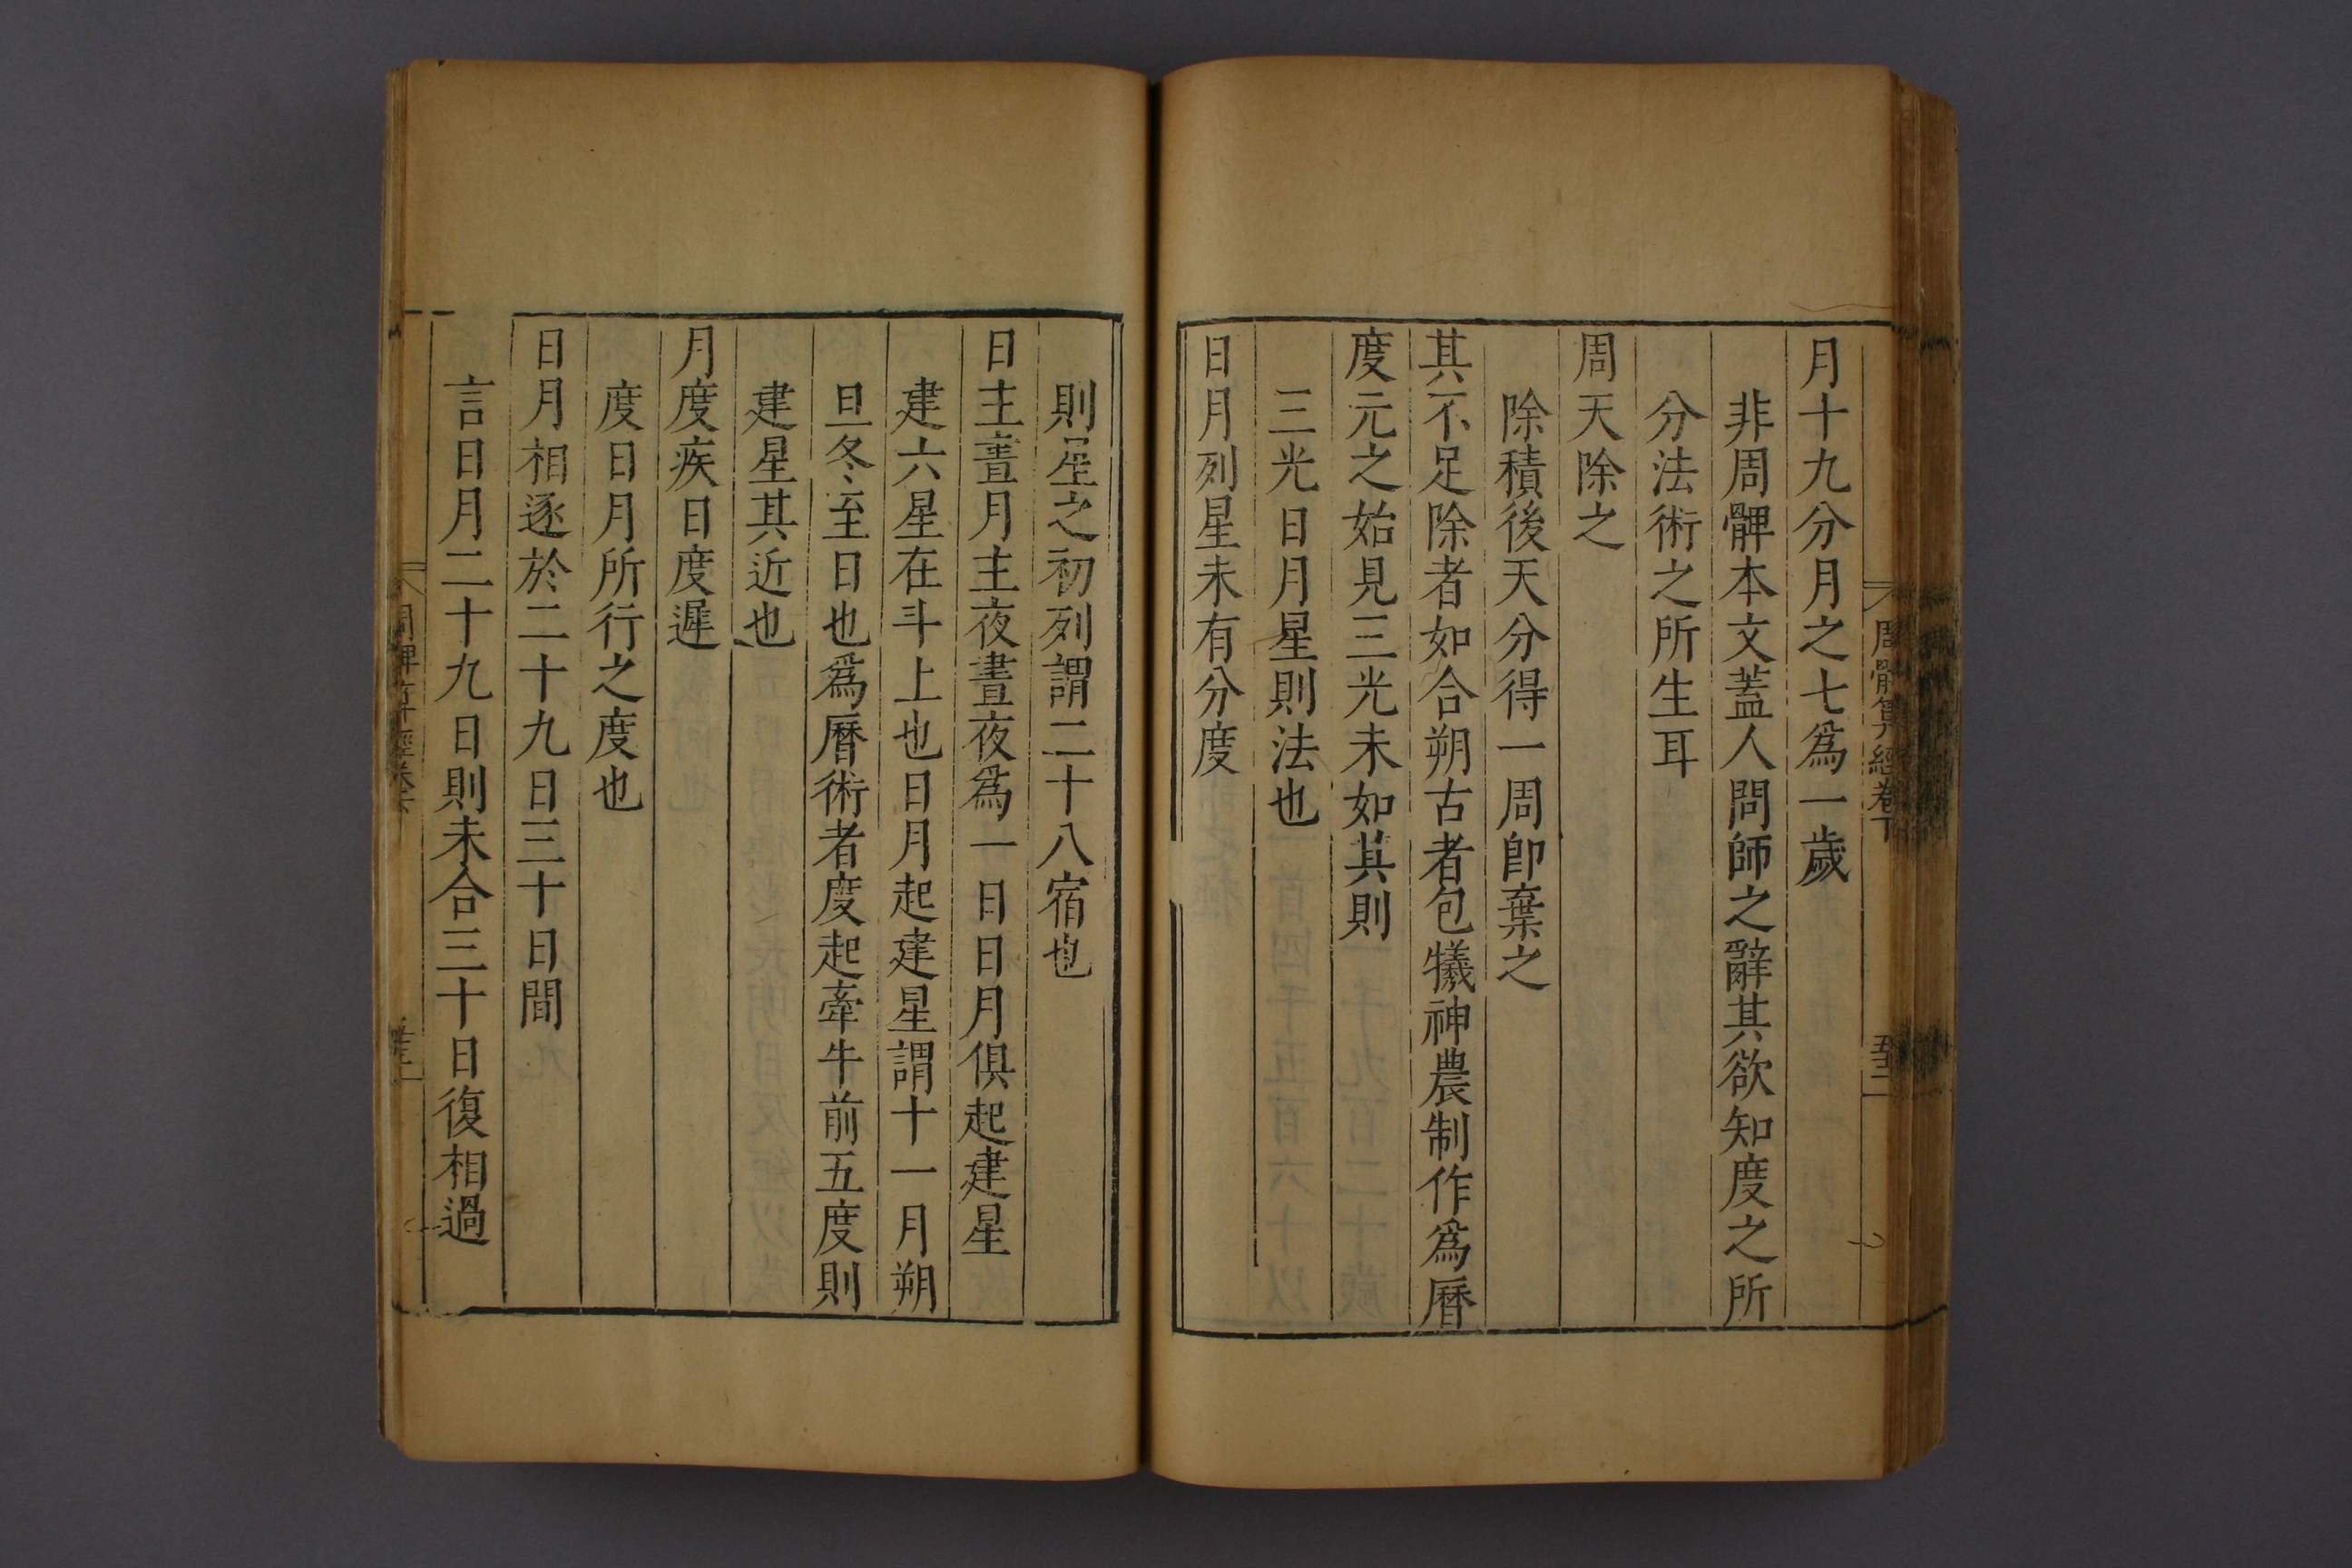 周髀算經卷下
五十二
月十九分月之七爲一歲
非周髀本文蓋人問師之辭其欲知度之所
分法術之所生耳
周天除之
除積後天分得一周卽棄之
其不足除者如合朔古者包犧神農制作爲曆
度元之始見三光未如其則
三光日月星則法也
日月列星未有分度
則星之初列謂二十八宿也
日主晝月主夜晝夜爲一日日月俱起建星
建六星在斗上也日月起建星謂十一月朔
旦冬至日也爲曆術者度起牽牛前五度則
建星其近也
月度疾日度遲
度日月所行之度也
日月相逐於二十九日三十日間
言日月二十九日則未合三十日復相過
周髀算經卷下